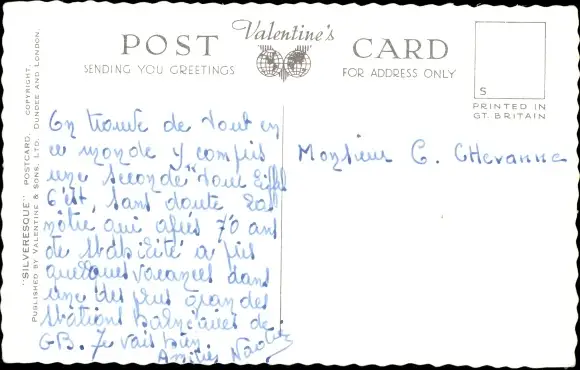 Valentine's
POST CARD
SENDING YOU GREETINGS
FOR ADDRESS ONLY
S
PRINTED IN
GT. BRITAIN
"SILVERESQUE" POSTCARD. COPYRIGHT.
PUBLISHED BY VALENTINE & SONS, LTD. DUNDEE AND LONDON.
On trouve de tout en
ce monde y compris
une seconde "Tour Eiffel
C'est, sans doute
nôtre qui après 70 ans
de stabilité a pris
quelques vacances dans
une des plus grandes
stations balnéaires de
GB. Je vais bien
Amitiés
Monsieur C. Chevanne